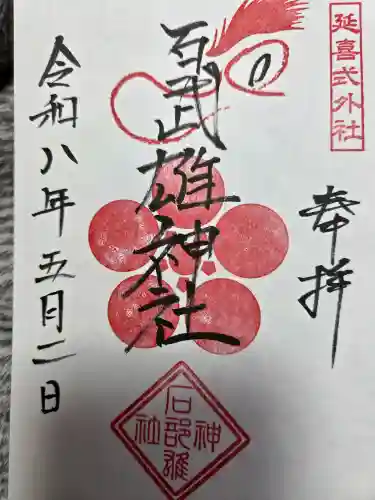 延喜式外社
奉拝
石武雄神社
令和八年五月二日
石部雄
神社